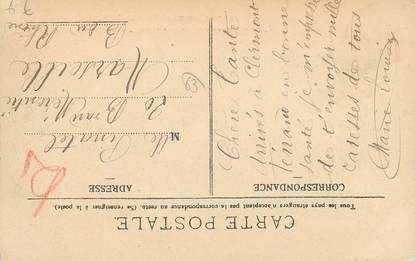 CARTE POSTALE
Tous les pays étrangers n'acceptent pas la correspondance au recto. (Se renseigner à la poste).
CORRESPONDANCE
ADRESSE
Chère Tante
Arrivés à Clermont
Ferrand en bonne
santé je m'empresse
de t'envoyer mille
caresses de tous
Marie Louise
M
elle
20 B
Marseille
B du Rhône